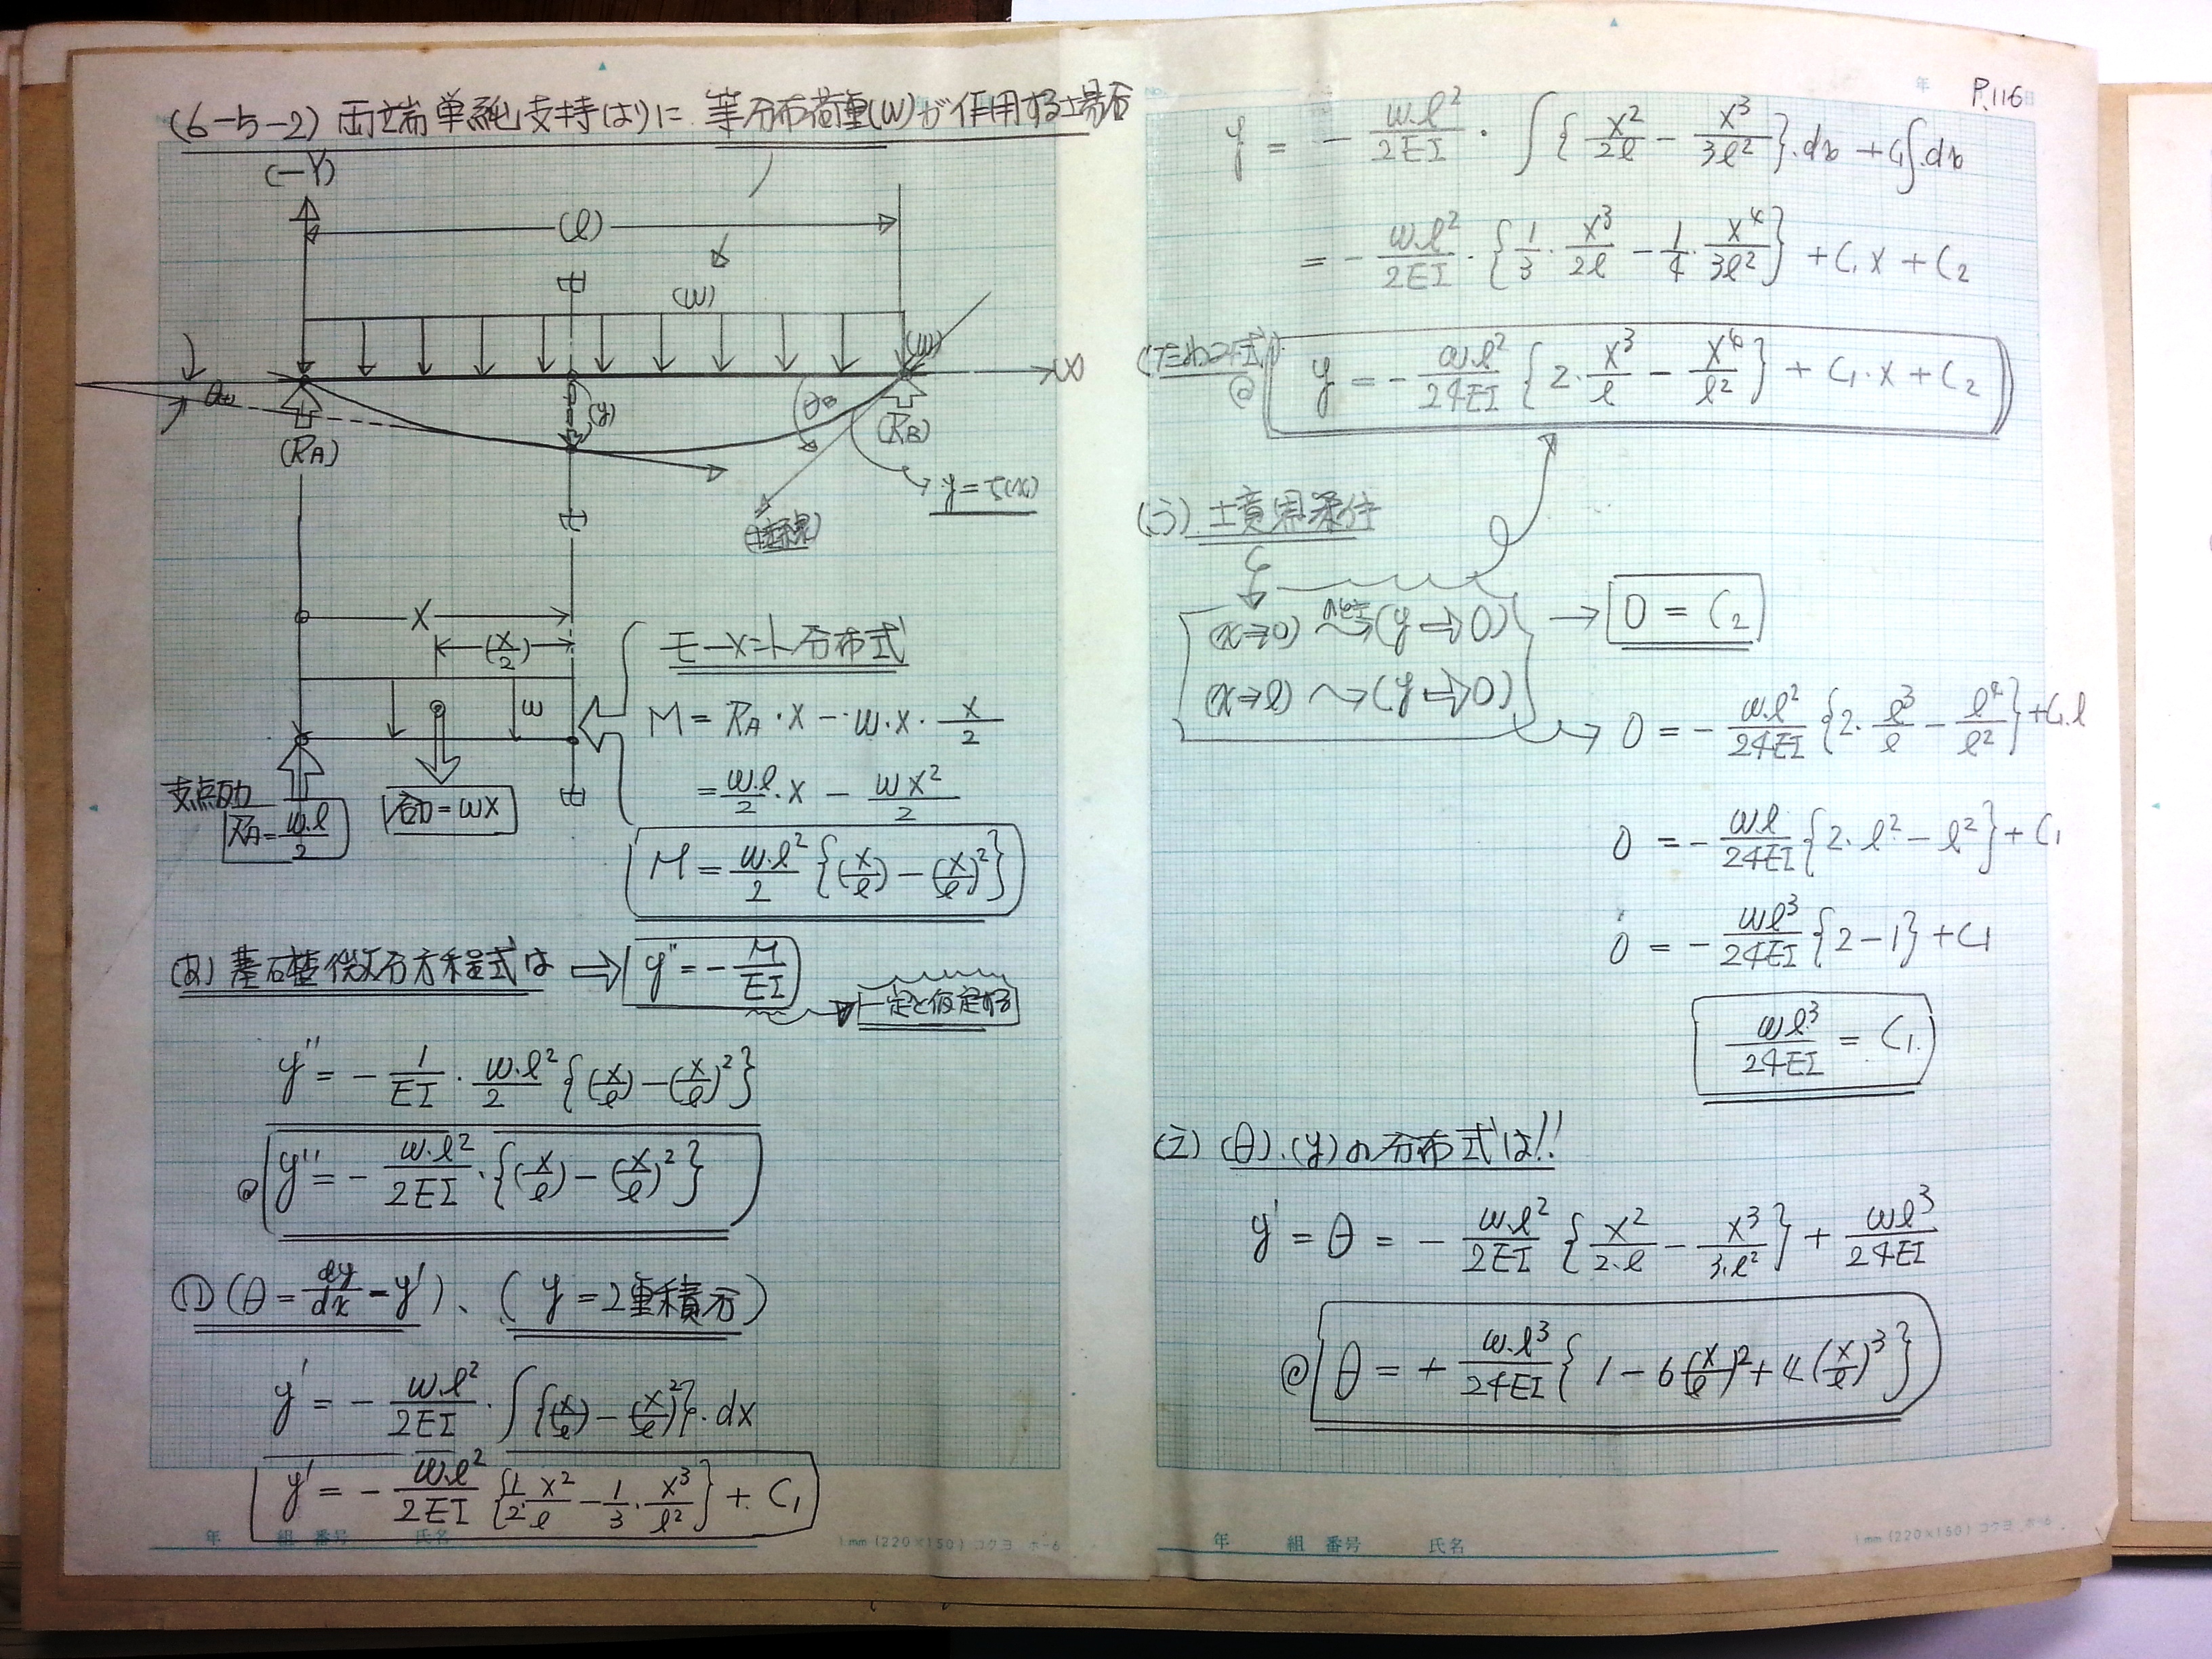 (6-5-2) 両端単純支持はりに等分布荷重(w)が作用する場合
(-Y)
(l)
(w)
(x)
θA
(y)
θB
(RA)
(RB)
(接線)
X
(x/2)
w
支点反力
RA = w·l/2
合力 = wx
モーメント分布式
M = RA·x - w·x·x/2
= w·l/2·x - wx²/2
M = w·l²/2 {(x/l) - (x/l)²}
(あ) 基礎微分方程式は ⇒ y'' = - M/EI
一定と仮定する
y'' = - 1/EI · w·l²/2 {(x/l) - (x/l)²}
y'' = - w·l²/2EI · {(x/l) - (x/l)²}
(い) (θ = dy/dx = y')、(y = 2重積分)
y' = - w·l²/2EI · ∫{(x/l) - (x/l)²}·dx
y' = - w·l²/2EI {1/2·x²/l - 1/3·x³/l²} + C₁
年 組 番号 氏名
1mm (220×150) コクヨ ホ-6
年
P.116
y = - w·l²/2EI · ∫{x²/2l - x³/3l²}·dx + C₁∫·dx
= - w·l²/2EI · {1/3·x³/2l - 1/4·x⁴/3l²} + C₁x + C₂
(たわみ式)
y = - w·l²/24EI {2·x³/l - x⁴/l²} + C₁·x + C₂
(う) 境界条件
(x→0) ⇝ (y⇒0) → 0 = C₂
(x⇒l) ⇝ (y⇒0)
→ 0 = - w·l²/24EI {2·l³/l - l⁴/l²} + C₁·l
0 = - wl/24EI {2·l² - l²} + C₁
0 = - wl³/24EI {2-1} + C₁
wl³/24EI = C₁
(え) (θ)、(y)の分布式は!!
y' = θ = - w·l²/2EI {x²/2·l - x³/3·l²} + wl³/24EI
θ = + w·l³/24EI {1 - 6(x/l)² + 4(x/l)³}
年 組 番号 氏名
1mm (220×150) コクヨ ホ-6